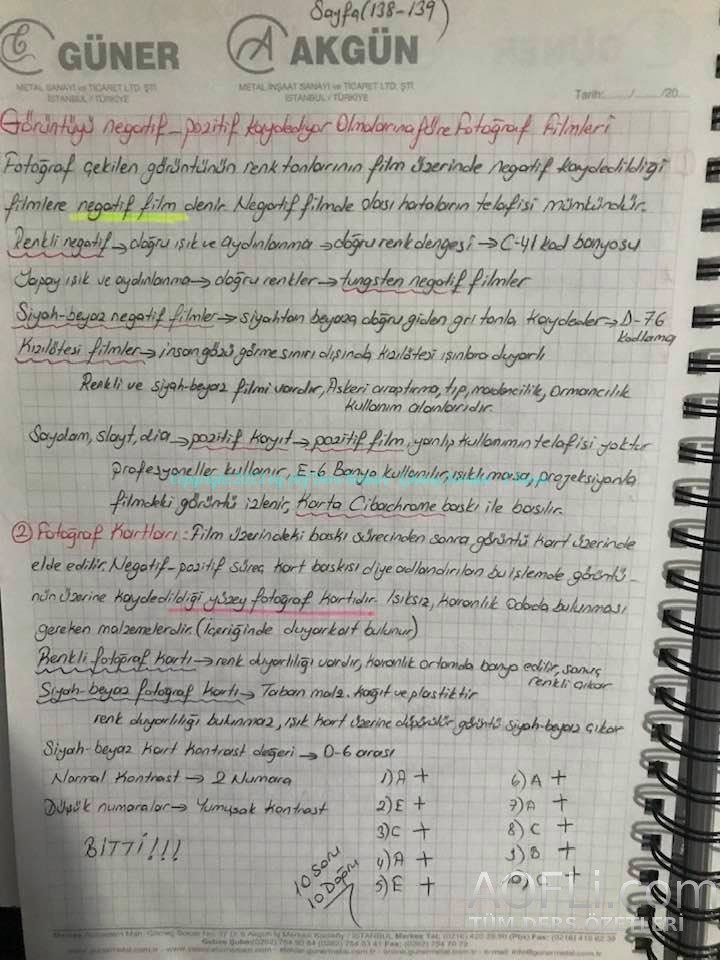 Sayfa (138-139)
GÜNER
METAL SANAYİ ve TİCARET LTD. ŞTİ.
İSTANBUL / TÜRKİYE
AKGÜN
METAL İNŞAAT SANAYİ ve TİCARET LTD. ŞTİ.
İSTANBUL / TÜRKİYE
Tarih: ....../....../20...
Görüntüyü negatif-pozitif Kaydediyor Olmalarına Göre Fotoğraf Filmleri
Fotoğraf çekilen görüntünün renk tonlarının film üzerinde negatif kaydedildiği
filmlere negatif film denir. Negatif filmde olası hataların telafisi mümkündür.
Renkli negatif → doğru ışık ve aydınlanma → doğru renk dengesi → C-41 kod banyosu
Yapay ışık ve aydınlanma → doğru renkler → tungsten negatif filmler
Siyah-beyaz negatif filmler → siyahtan beyaza doğru giden gri tonla kaydeder → D-76
kodlama
Kızılötesi filmler → insan gözü görme sınırı dışında kızılötesi ışınlara duyarlı
Renkli ve siyah-beyaz filmi vardır, Askeri araştırma, tıp, madencilik, ormancılık
kullanım alanlarıdır.
Saydam, slayt, dia → pozitif kayıt → pozitif film, yanlış kullanımın telafisi yoktur
profesyoneller kullanır, E-6 Banyo kullanılır, ışıklı masa, projeksiyonla
filmdeki görüntü izlenir, Karta Cibachrome baskı ile basılır.
② Fotoğraf Kartları: Film üzerindeki baskı sürecinden sonra görüntü kart üzerinde
elde edilir. Negatif-pozitif süreç kart baskısı diye adlandırılan bu işlemde görüntü-
nün üzerine kaydedildiği yüzey fotoğraf kartıdır. Işıksız, karanlık odada bulunması
gereken malzemelerdir. (İçeriğinde duyarkat bulunur)
Renkli fotoğraf kartı → renk duyarlılığı vardır, karanlık ortamda banyo edilir, sonuç
renkli çıkar
Siyah-beyaz fotoğraf kartı → Taban malz. kağıt ve plastiktir
renk duyarlılığı bulunmaz, ışık kart üzerine düşürülür görüntü siyah-beyaz çıkar
Siyah-beyaz kart kontrast değeri → 0-6 arası
Normal kontrast → 2 Numara
Düşük numaralar → Yumuşak kontrast
BİTTİ!!!
1) A +
2) E +
3) C +
4) A +
5) E +
6) A +
7) A +
8) C +
9) B +
10) C +
10 Soru
10 Doğru
AOFLi.com
TÜM DERS ÖZETLERİ